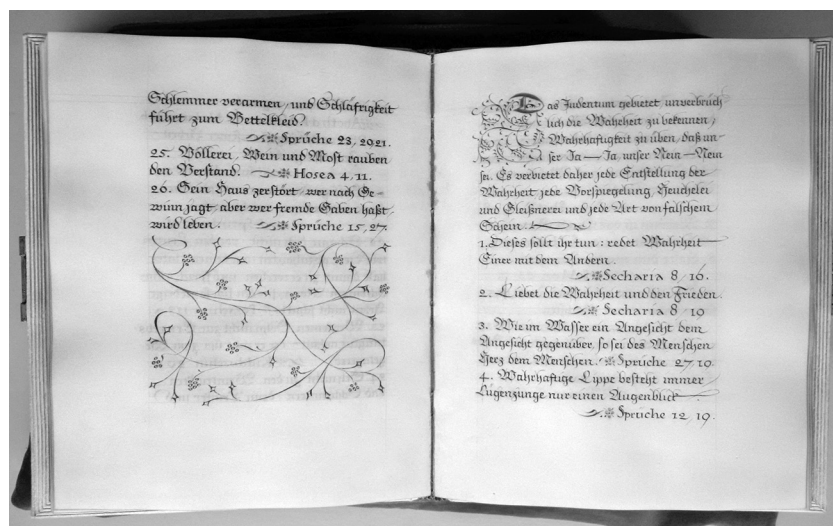 Schlemmer verarmen, und Schläfrigkeit
führt zum Bettelkleid.
Sprüche 23, 20 21.
25. Völlerei, Wein und Most rauben
den Verstand. Hosea 4, 11.
26. Sein Haus zerstört, wer nach Ge-
winn jagt, aber wer fremde Gaben haßt,
wird leben. Sprüche 15, 27.
Das Judentum gebietet, unverbrüch
lich die Wahrheit zu bekennen,
Wahrhaftigkeit zu üben, daß un-
ser Ja — Ja, unser Nein — Nein
sei. Es verbietet daher jede Entstellung der
Wahrheit, jede Vorspiegelung, Heuchelei
und Gleißnerei und jede Art von falschem
Schein.
1. Dieses sollt ihr tun: redet Wahrheit
Einer mit dem Andern.
Secharia 8, 16.
2. Liebet die Wahrheit und den Frieden.
Secharia 8, 19
3. Wie im Wasser ein Angesicht dem
Angesicht gegenüber, so sei des Menschen
Herz dem Menschen. Sprüche 27, 19.
4. Wahrhaftige Lippe besteht immer
Lügenzunge nur einen Augenblick
Sprüche 12, 19.